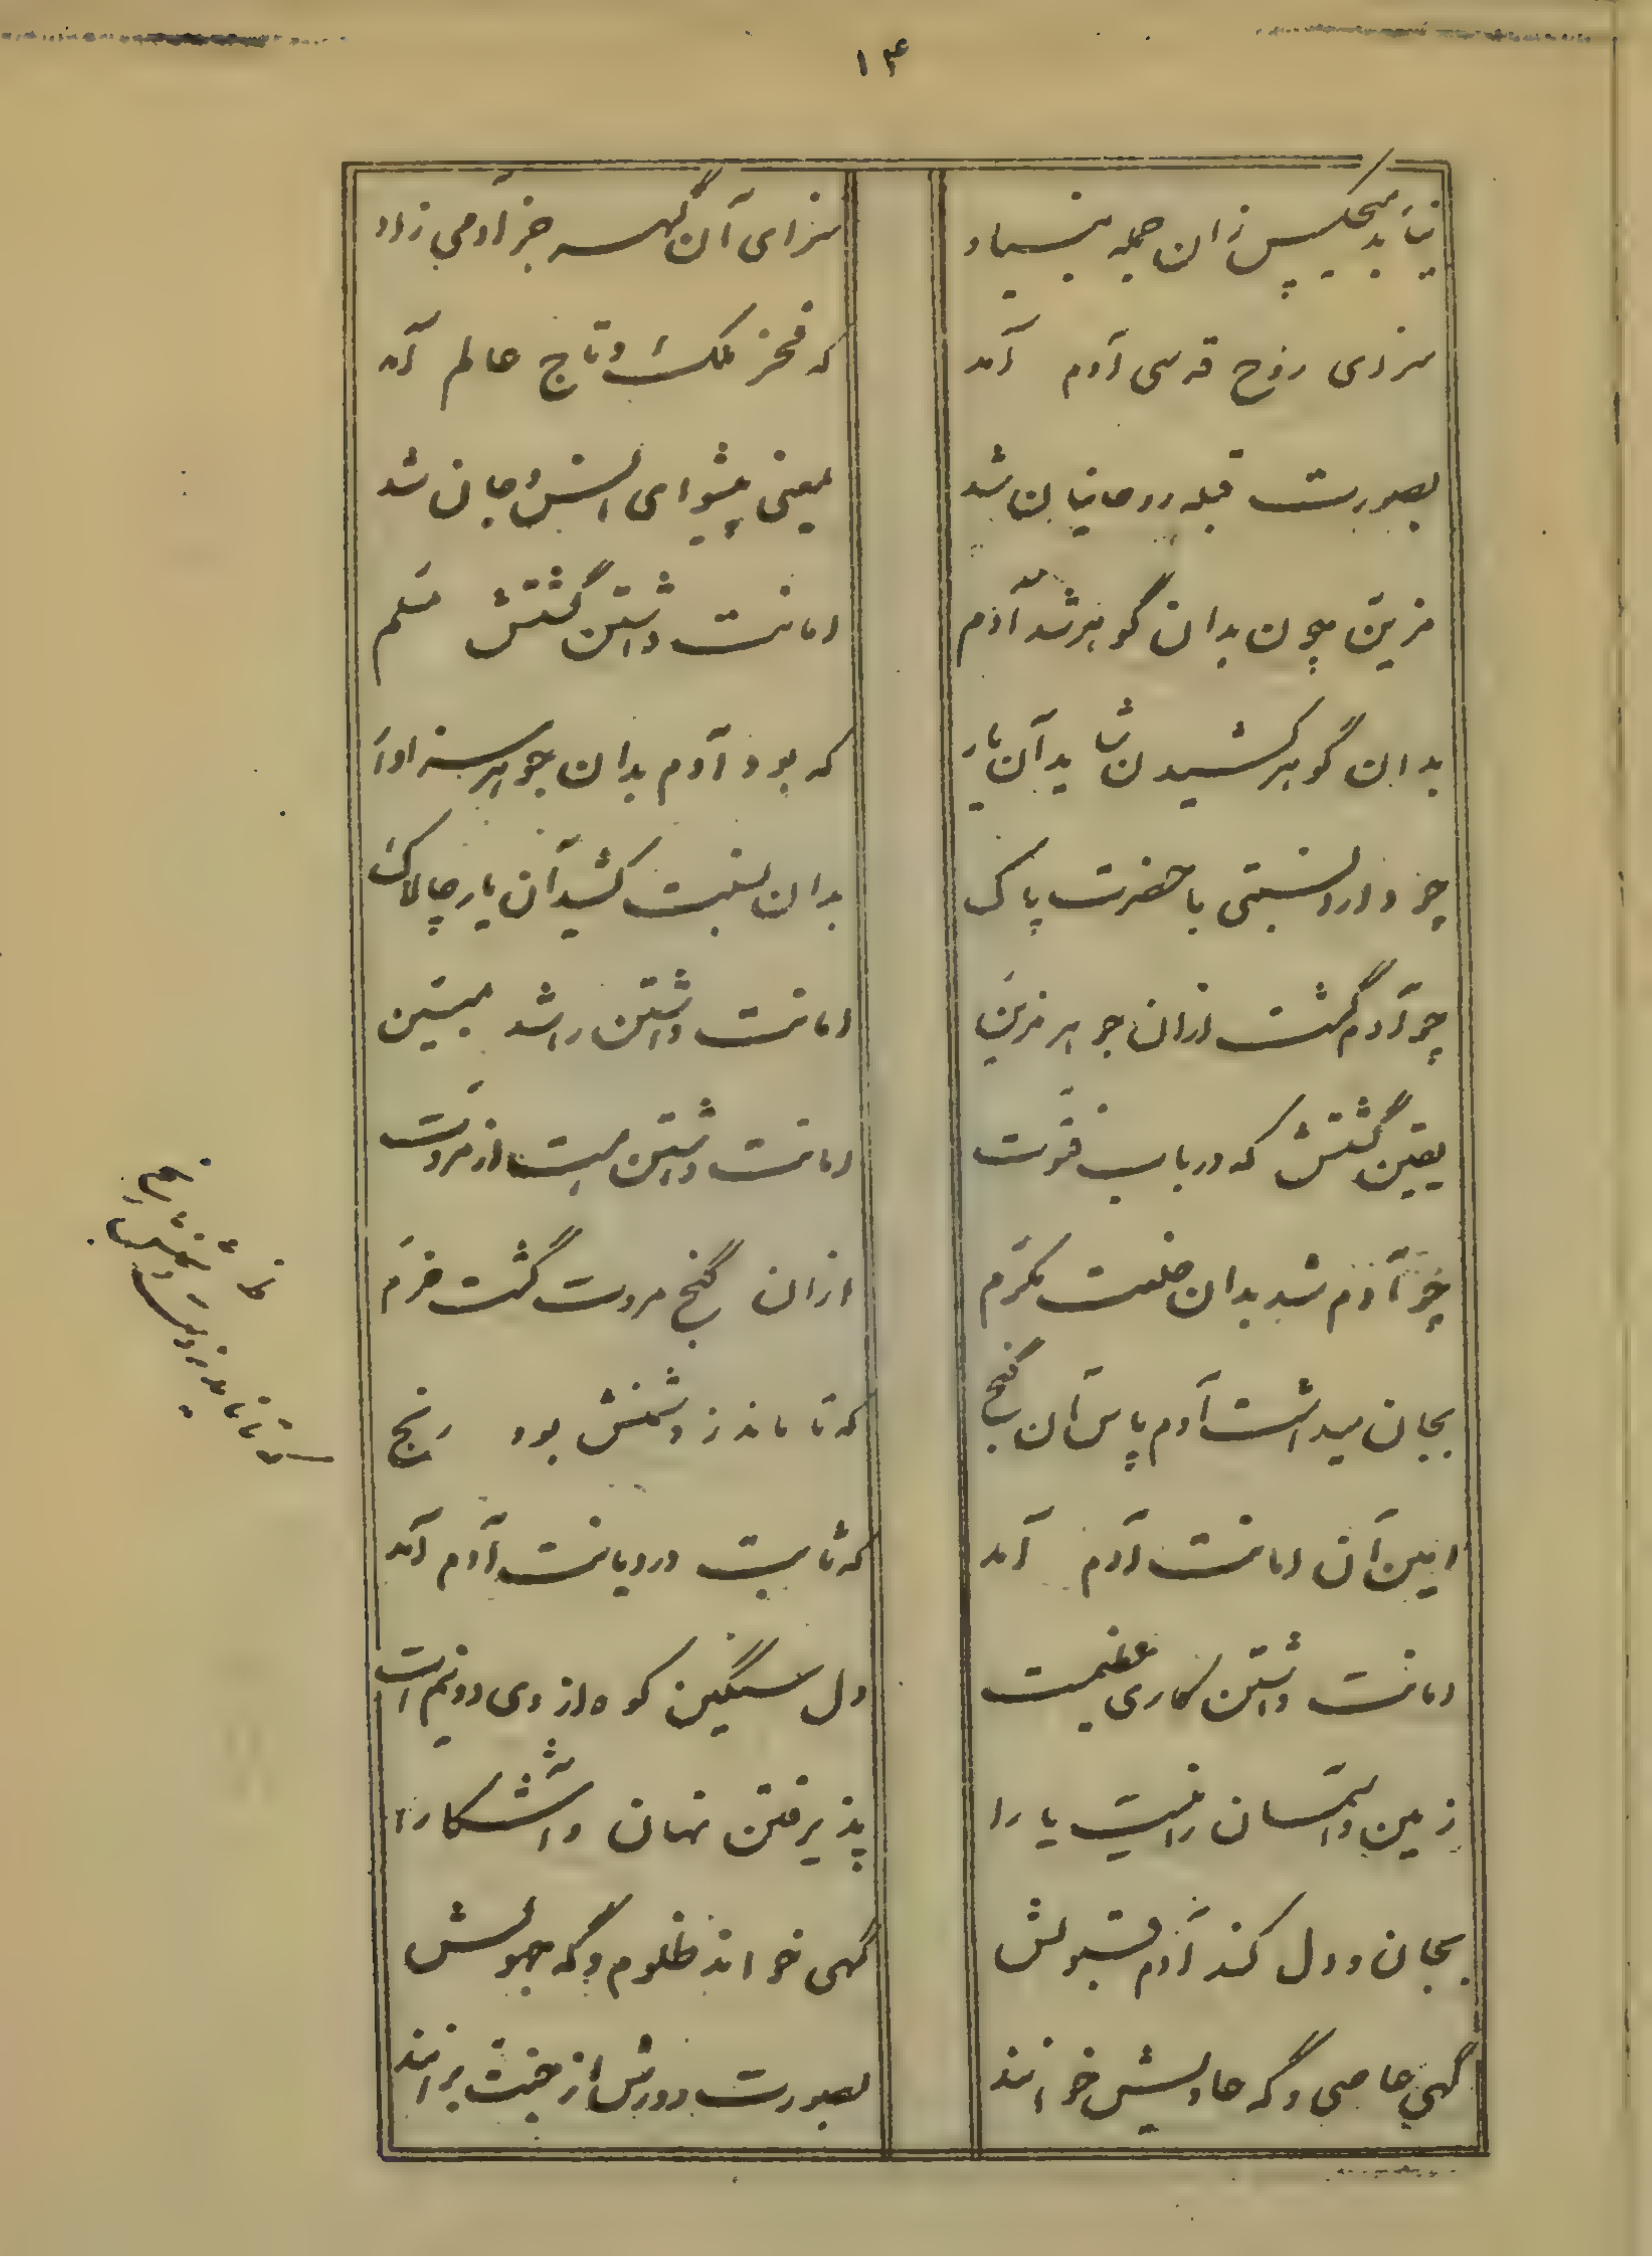 ۱۴
نیابد هیچکس زان جمله بنیاد سزای آن گهر جز آدمی زاد
سزای روح قدسی آدم آمد که فخر ملک و تاج عالم آمد
بصورت قبله روحانیان شد بمعنی پیشوای انس و جان شد
مزین چون بدان گوهر شد آدم امانت داشتن گشتش مسلم
بدان گوهر کشیدن شاید آن بار که بود آدم بدان جوهر سزاوار
چو دارد نسبتی با حضرت پاک بدان نسبت کشید آن یار چالاک
چو آدم گشت ازان جوهر مزین امانت داشتن را شد مبین
یقین گشتش که در باب فتوت امانت داشتن هست از مروت
چو آدم شد بدان خلعت مکرم ازان گنج مروت گشت خرم
بجان میداشت آدم پاس آن گنج که تا ماند ز دشمنش بود رنج
امین آن امانت آدم آمد که ثابت در دیانت آدم آمد
امانت داشتن کاری عظیمست دل سنگین کوه از وی دو نیم است
زمین و آسمان را نیست یارا پذیرفتن نهان و آشکارا
بجان و دل کند آدم قبولش گهی خواند ظلوم و گه جهولش
گهی عاصی و گه عادلیش خوانند بصورت دورش از جنت برانند